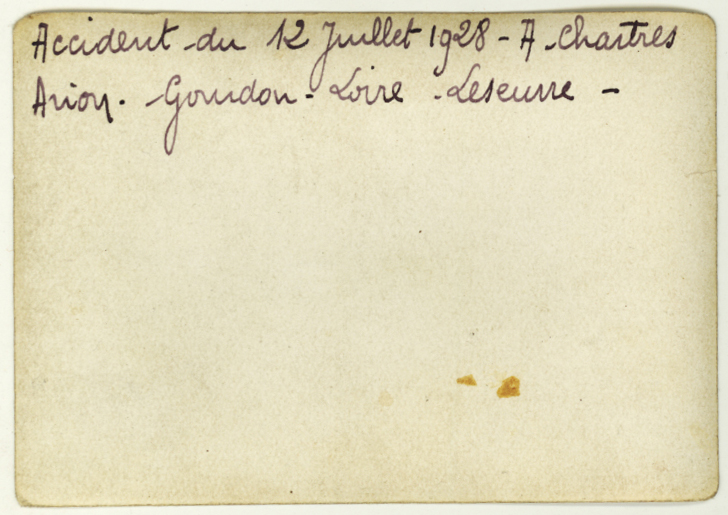 Accident du 12 Juillet 1928 - A Chartres
Avion. Gourdon - Loire - Leseurre -